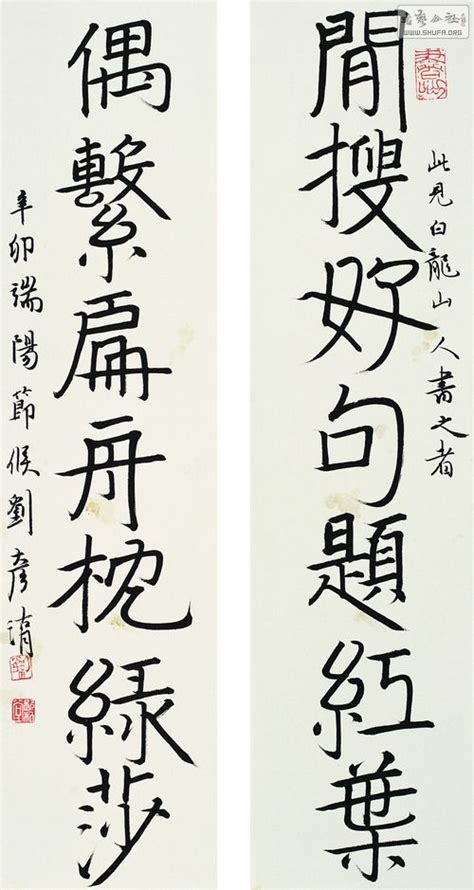 WWW.SHUFA.ORG
此見白龍山人書之者
閒搜好句題紅葉
偶繫扁舟枕綠莎
辛卯端陽節候劉彥